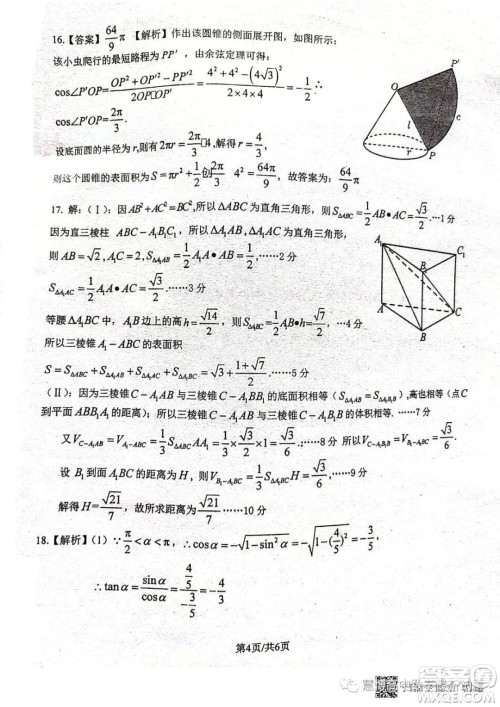 16.【答案】64/9 π 【解析】作出该圆锥的侧面展开图，如图所示：
该小虫爬行的最短路程为 PP′，由余弦定理可得：
cos∠P′OP = (OP²+OP′²−PP′²)/(2OP·OP′) = (4²+4²−(4√3)²)/(2×4×4) ∴
cos∠P′OP = 2π/3.
设底面圆的半径为 r,则有 2πr = 2π/3 · 4，解得 r = 4/3.
则这个圆锥的表面积为 S = πr² + 1/2
故答案为: 64/9 π
O
P′
l
c
r
P
17. 解:（Ⅰ）：因 AB²+AC²=BC²,所以 ΔABC 为直角三角形，则 S_ΔABC = 1/2 AB•AC = √3/2.…1分
因为直三棱柱 ABC−A₁B₁C₁，所以 ΔA₁AB、ΔA₁AC 为直角三角形，
则 A₁B=√2、A₁C=2, S_ΔA₁AB = 1/2 A₁A•AB = 1/2 ……2分
S_ΔA₁AC = 1/2 A₁A•AC = √3/2 ……3分
等腰 ΔA₁BC 中，A₁B 边上的高 h = √14/2，则 S_ΔA₁BC = 1/2 A₁B•h = √7/2，……4分
所以三棱锥 A₁−ABC 的表面积
S = S_ΔABC + S_ΔA₁AB + S_ΔA₁AC + S_ΔA₁BC = √3 + (1+√7)/2 ……5分
A₁
C₁
B₁
A
C
B
（Ⅱ）: 因为三棱锥 C−A₁AB 与三棱锥 C−A₁B₁B 的底面积相等（S_ΔA₁AB=S_ΔA₁B₁B）,高也相等（点C
到平面 ABB₁A₁ 的距离）; 所以三棱锥 C−A₁AB 与三棱锥 C−A₁B₁B 的体积相等. ……6分
又 V_C−A₁AB = V_A₁−ABC = 1/3 S_ΔABC AA₁ = 1/3×√3/2×1 = √3/6……7分. 所以 V_C−A₁B₁B = V_B₁−A₁BC = √3/6 ……8分
设 B₁ 到面 A₁BC 的距离为 H，则 V_B₁−A₁BC = 1/3 S_ΔA₁BC H = √3/6 ……9分
解得 H = √21/7，故所求距离为 √21/7 ……10分
18.【解析】（1）∵ π/2 < α < π，∴ cos α = −√(1−sin²α) = −√(1−(4/5)²) = −3/5，
∴ tan α = sin α/cos α = (4/5)/(−3/5) = −4/3
第4页/共6页